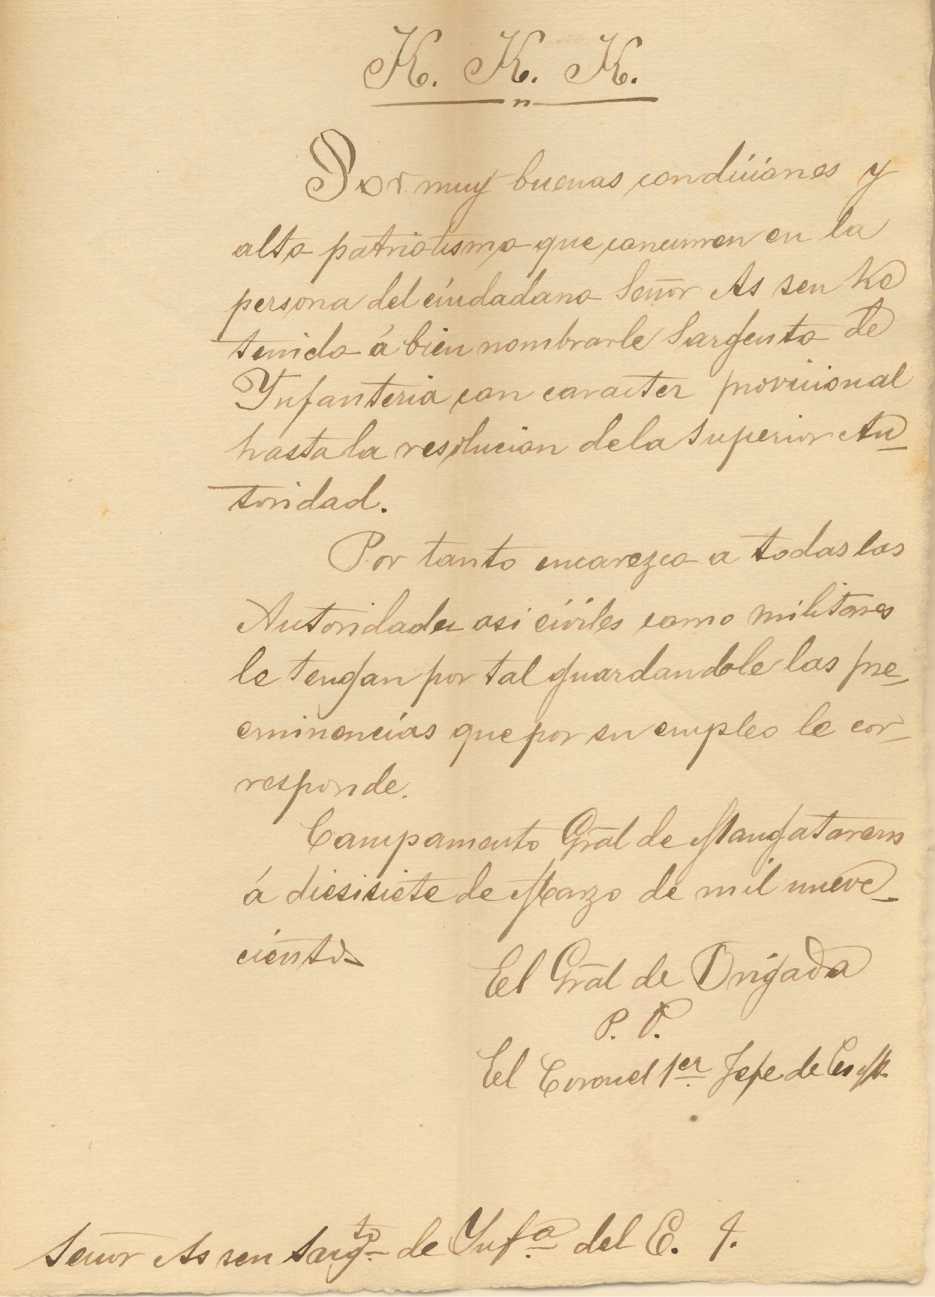 K. K. K.
n
Por muy buenas condiciones y
alto patriotismo que concurren en la
persona del ciudadano Señor As sen he
tenido á bien nombrarle Sargento de
Ynfanteria con caracter provicional
hasta la resolucion de la Superior Au-
toridad.
Por tanto encarezco a todas las
Autoridades asi civiles como militares
le tengan por tal guardandole las pre-
eminencias que por su empleo le cor-
responde.
Campamento Gral de Mangatarem
á diesisiete de Marzo de mil nueve-
cientos
El Gral de Brigada
P. O.
El Coronel 1er Jefe de
Señor As sen Sargto de Ynfa del E. F.